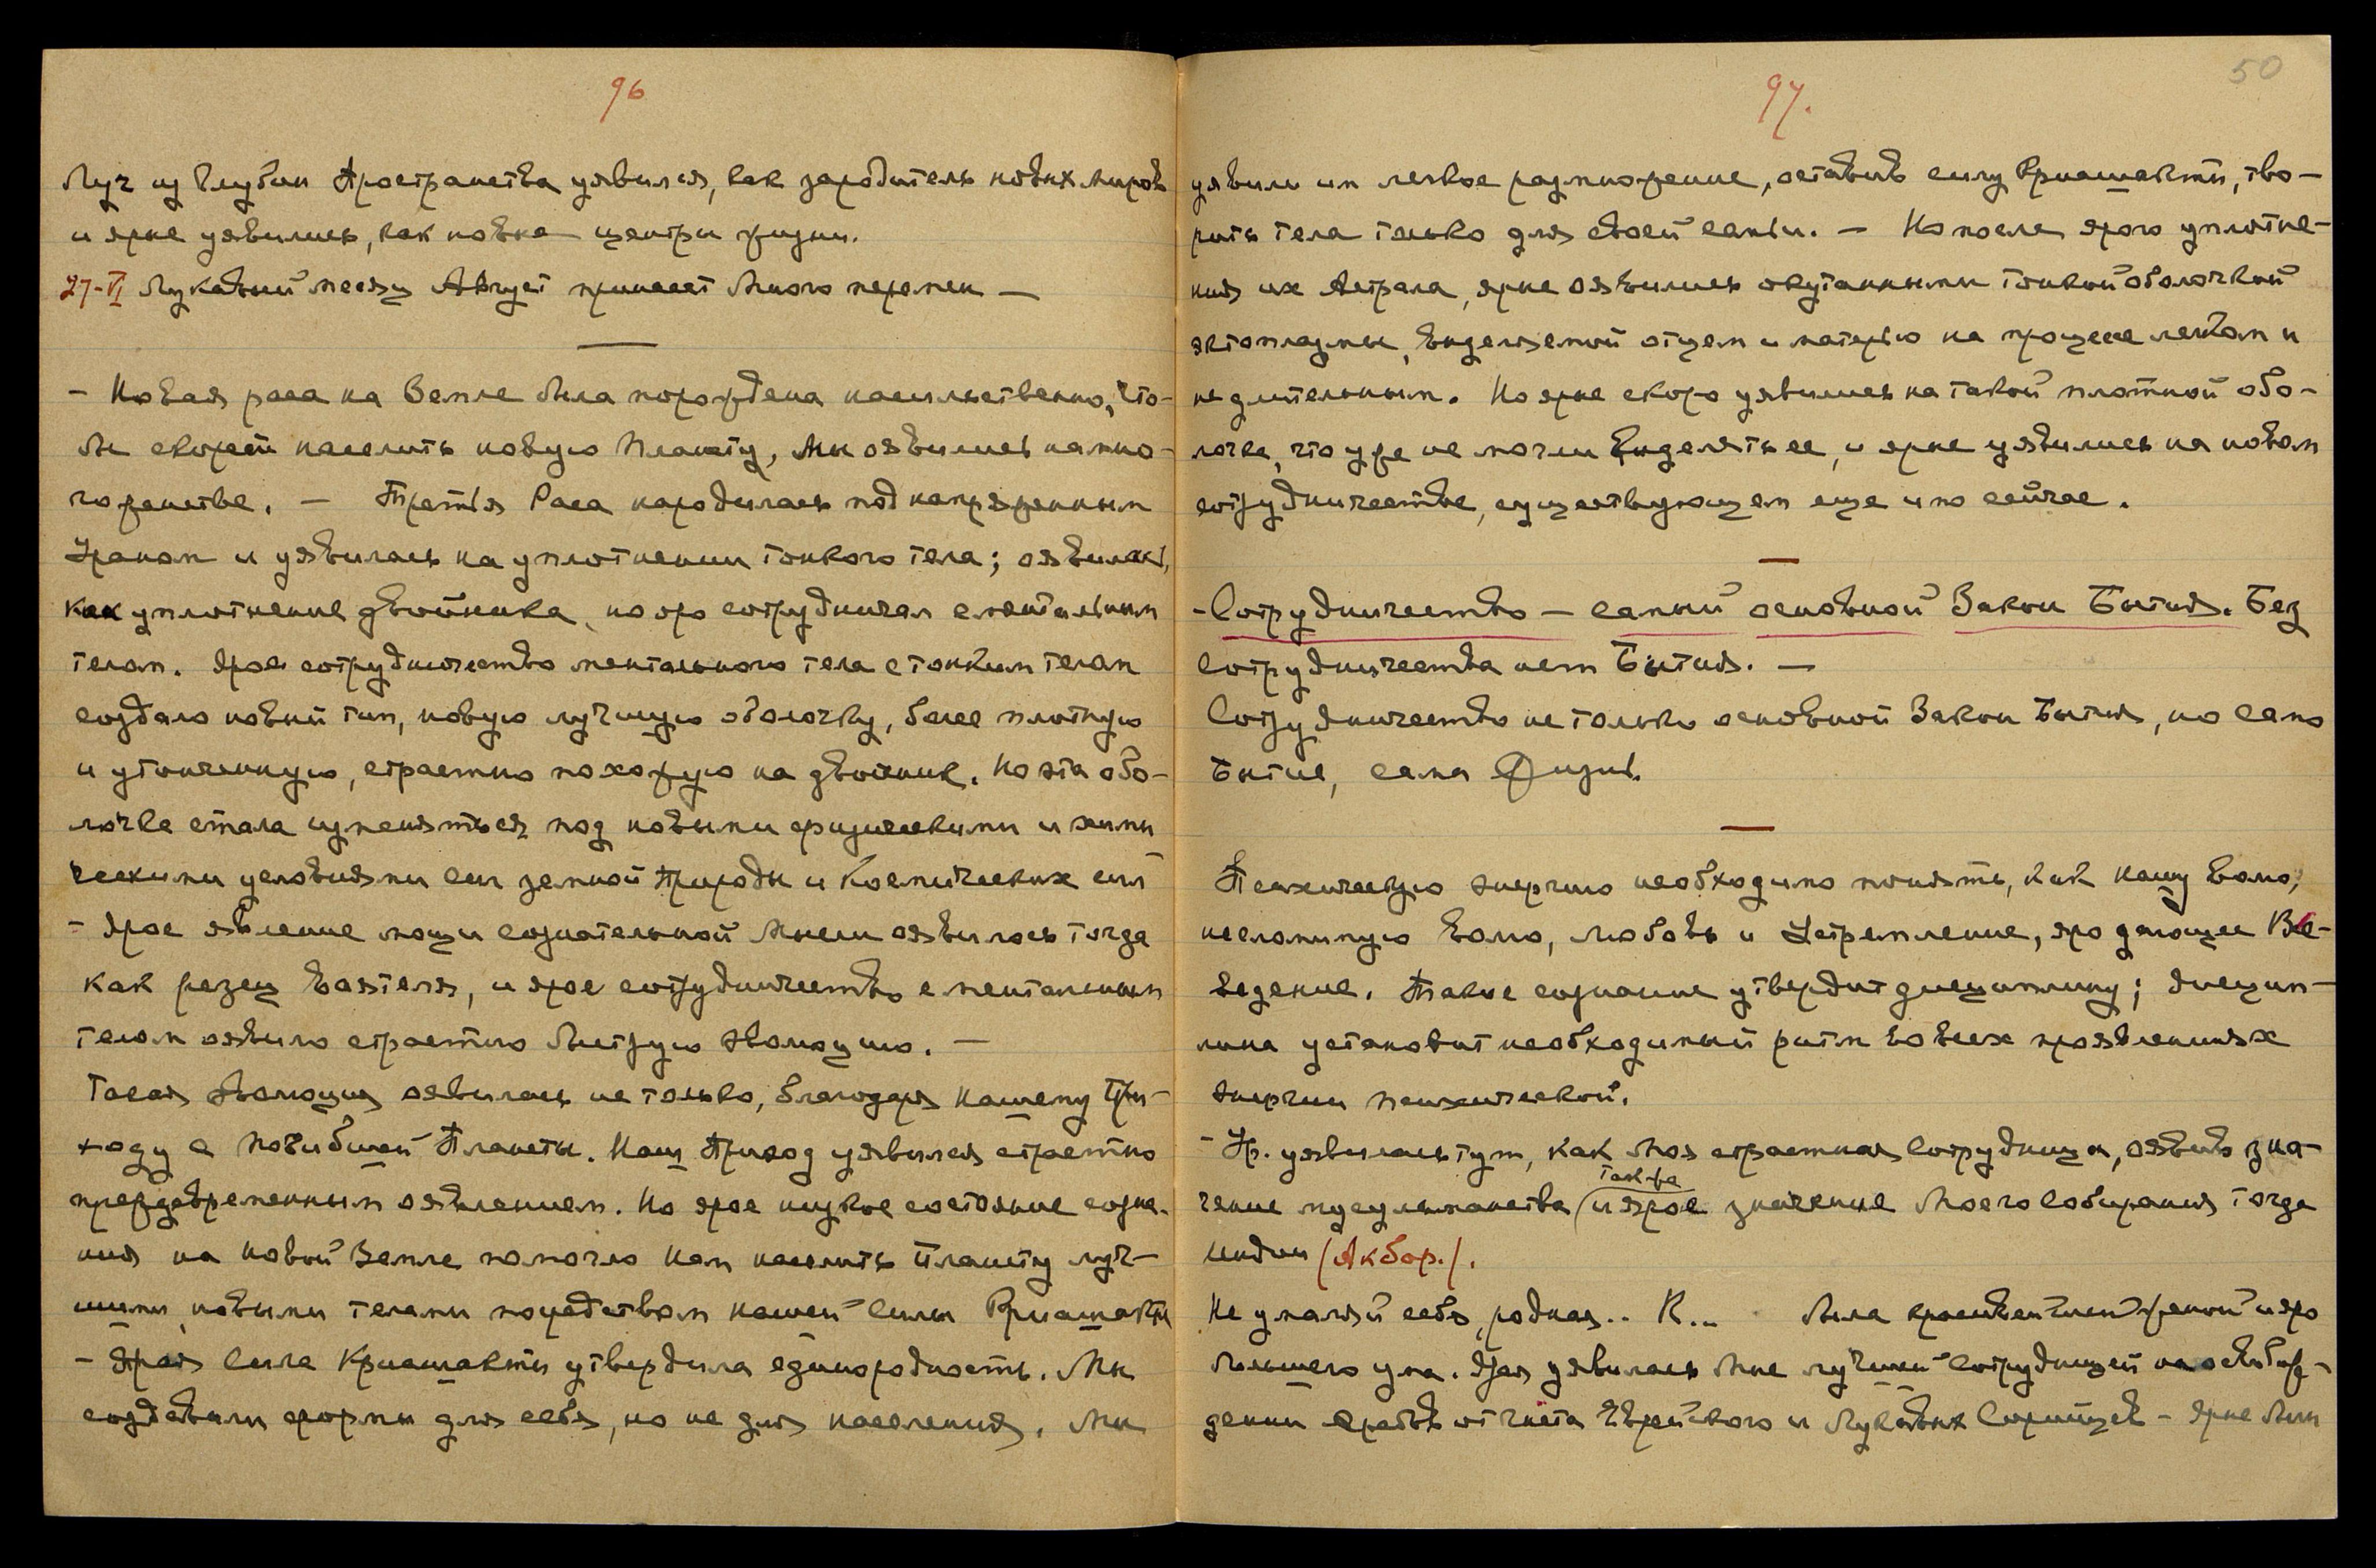 96
Луч из Глубин Пространства уявился, как зародитель новых миров
и ярые уявились, как новые центры жизни.
27-VI Лукавый месяц Август принесет много перемен —
– Новая раса на Земле была порождена насильственно, что-
бы скорей населить новую Планету, мы оявились на мно-
гоженстве. — Третья Раса народилась под напряженным
Ураном и уявилась на уплотнении тонкого тела; оявилась,
как уплотнение двойника, но яро сотрудничал с ментальным
телом. Ярое сотрудничество ментального тела с тонким телом
создало новый тип, новую лучшую оболочку, более плотную
и утонченную, страстно похожую на двойник. Но эта обо-
лочка стала изменяться под новыми физическими и хими
ческими условиями сил земной Природы и Космических сил
– Ярое явление мощи сознательной Мысли оявилось тогда
как резец ваятеля, и ярое сотрудничество с ментальным
телом оявило страстно быструю эволюцию. —
Такая эволюция оявилась не только, благодаря нашему При-
ходу с Погибшей Планеты. Наш Приход уявился страстно
преждевременным оявлением. Но ярое низкое состояние созна-
ния на новой Земле помогло нам населить Планету луч-
шими, новыми телами посредством нашей Силы Криашакти
– Ярая Сила Криашакти утвердила единородность. Мы
создавали формы для себя, но не для населения. Мы
50
97.
уявили им легкое размножение, оставив силу Криашакти, тво-
рить тела только для своей самьи. — Но после ярого уплотне-
ния их Астрала, ярые оявились окутанными тонкой оболочкой
эктоплазмы, выделяемой отцем и матерью на процессе легком и
не длительным. Но ярые скоро уявились на такой плотной обо-
лочке, что уже не могли выделять ее, и ярые уявились на новом
сотрудничестве, существующем еще и по сейчас.
– Сотрудничество — самый основной Закон Бытия. Без
Сотрудничества нет Бытия. —
Сотрудничество не только основной Закон Бытия, но само
Бытие, сама Жизнь.
Психическую энергию необходимо понять, как нашу волю,
несломимую волю, любовь и Устремление, яро дающее Все-
ведение. Такое сознание утвердит дисциплину; дисцип-
лина установит необходимый ритм во всех проявлениях
энергии психической.
– Ур. уявилась тут, как Моя страстная Сотрудница, оявив зна-
так-же
чение мусульманства (и ярое значение Моего Собирания тогда
Индии (Акбар.).
Не умаляй себя, родная.. К... была красивейшей женой и яро
большого ума. Ярая уявилась Мне лучшей Сотрудницей на освобож-
дении арабов от гнета Еврейского и Лукавых Сирийцев – ярые были